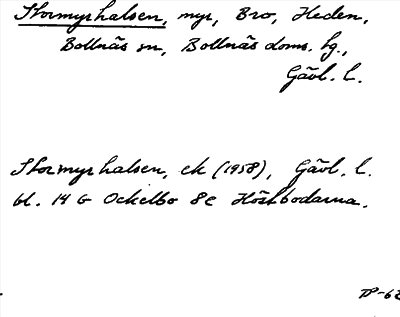 Stormyrhalsen, myr, Bro, Heden,
Bollnäs sn, Bollnäs doms. hg.,
Gävl. l.
Stormyrhalsen, ek (1958), Gävl. l.
bl. 14 G Ockelbo 8c Höstbodarna.